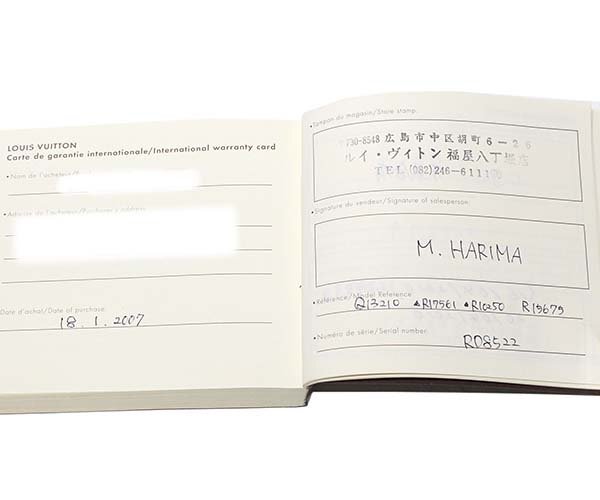 LOUIS VUITTON
Carte de garantie internationale/International warranty card
•Nom de l'acheteur/
•Adresse de l'acheteur/Purchaser's address
Date d'achat/Date of purchase
18. 1. 2007
•Tampon du magasin/Store stamp:
〒730-8548 広島市中区胡町6-26
ルイ・ヴィトン福屋八丁堀店
TEL (082)246-6111
•Signature du vendeur/Signature of salesperson:
M. HARIMA
•Référence/Model Reference
Q13210 ▲R17561 ▲R10250 R15679
•Numéro de série/Serial number
RD8522